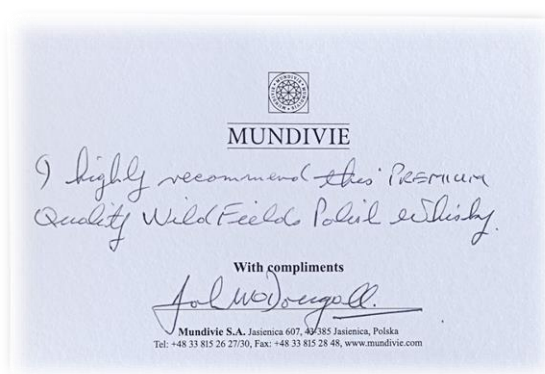 MUNDIVIE
I highly recommend this PREMIUM
Quality Wild Fields Polish Whisky.
With compliments
McDougall
Mundivie S.A. Jasienica 607, 43-385 Jasienica, Polska
Tel: +48 33 815 26 27/30, Fax: +48 33 815 28 48, www.mundivie.com